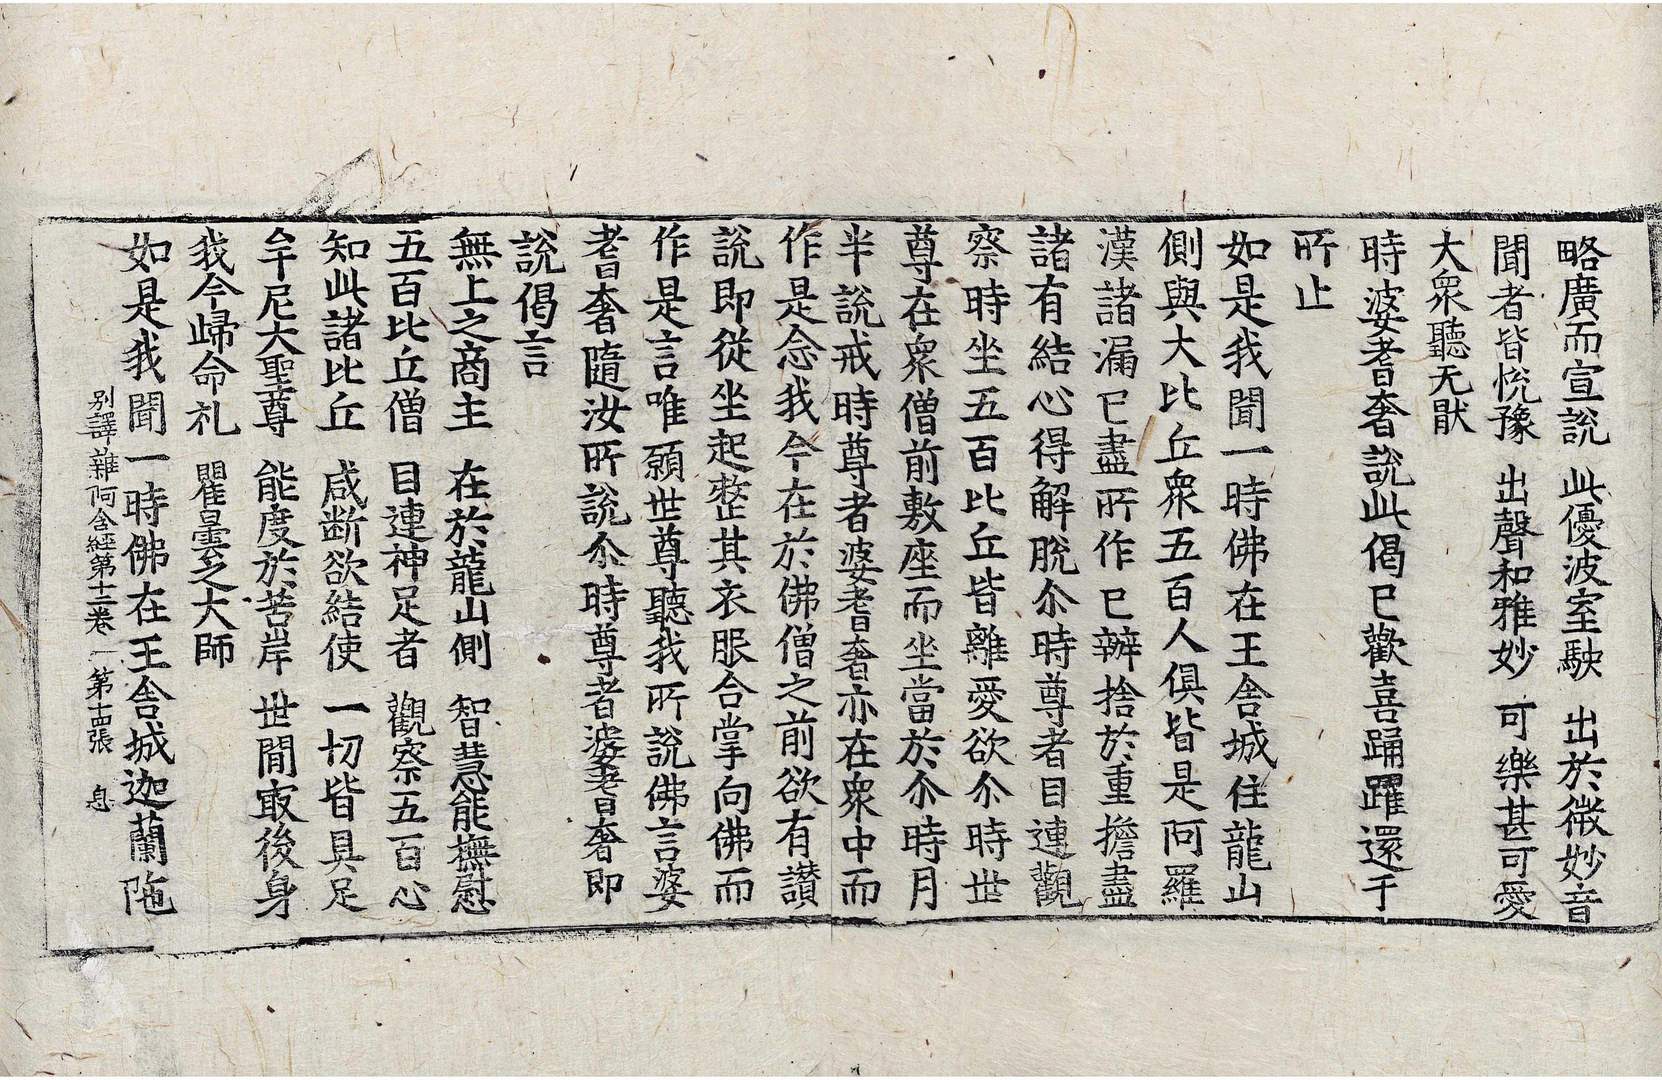 略廣而宣說 此優波室駛 出於微妙音
聞者皆悅豫 出聲和雅妙 可樂甚可愛
大衆聽无猒
時婆耆奢說此偈已歡喜踊躍還于
所止
如是我聞一時佛在王舍城住龍山
側與大比丘衆五百人俱皆是阿羅
漢諸漏已盡所作已辦捨於重擔盡
諸有結心得解脫尒時尊者目連觀
察時坐五百比丘皆離愛欲尒時世
尊在衆僧前敷座而坐當於尒時月
半說戒時尊者婆耆奢亦在衆中而
作是念我今在於佛僧之前欲有讃
說即從坐起整其衣服合掌向佛而
作是言唯願世尊聽我所說佛言婆
耆奢隨汝所說尒時尊者婆耆奢即
說偈言
無上之商主 在於龍山側 智慧能撫慰
五百比丘僧 目連神足者 觀察五百心
知此諸比丘 咸斷欲結使 一切皆具足
牟尼大聖尊 能度於苦岸 世間冣後身
我今歸命礼 瞿曇之大師
如是我聞一時佛在王舍城迦蘭陁
別譯雜阿含經第十二卷 第十四張 息